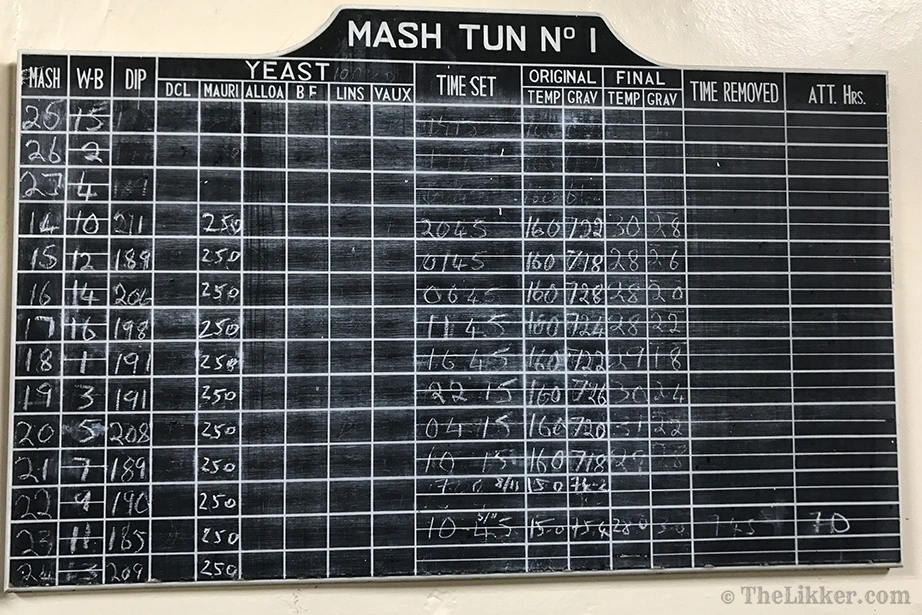 MASH TUN Nº 1
MASH W·B DIP YEAST TIME SET ORIGINAL FINAL TIME REMOVED ATT. HRS.
DCL MAURI ALLOA B F LINS VAUX TEMP GRAV TEMP GRAV
25 15
26 2
27 4
14 10 211 250 2045 160 722 30 28
15 12 189 250 0145 160 718 28 26
16 14 206 250 0645 160 728 28 20
17 16 198 250 1145 160 724 28 22
18 1 191 250 1645 160 722 29 18
19 3 191 250 2215 160 726 30 24
20 5 208 250 0415 160 720 31 22
21 7 189 250 10 15 160 718
22 9 190 250 8/11 15.0
23 11 185 250 10-45 15.0 75.4 28.0 745 70
24 13 209 250
© TheLikker.com